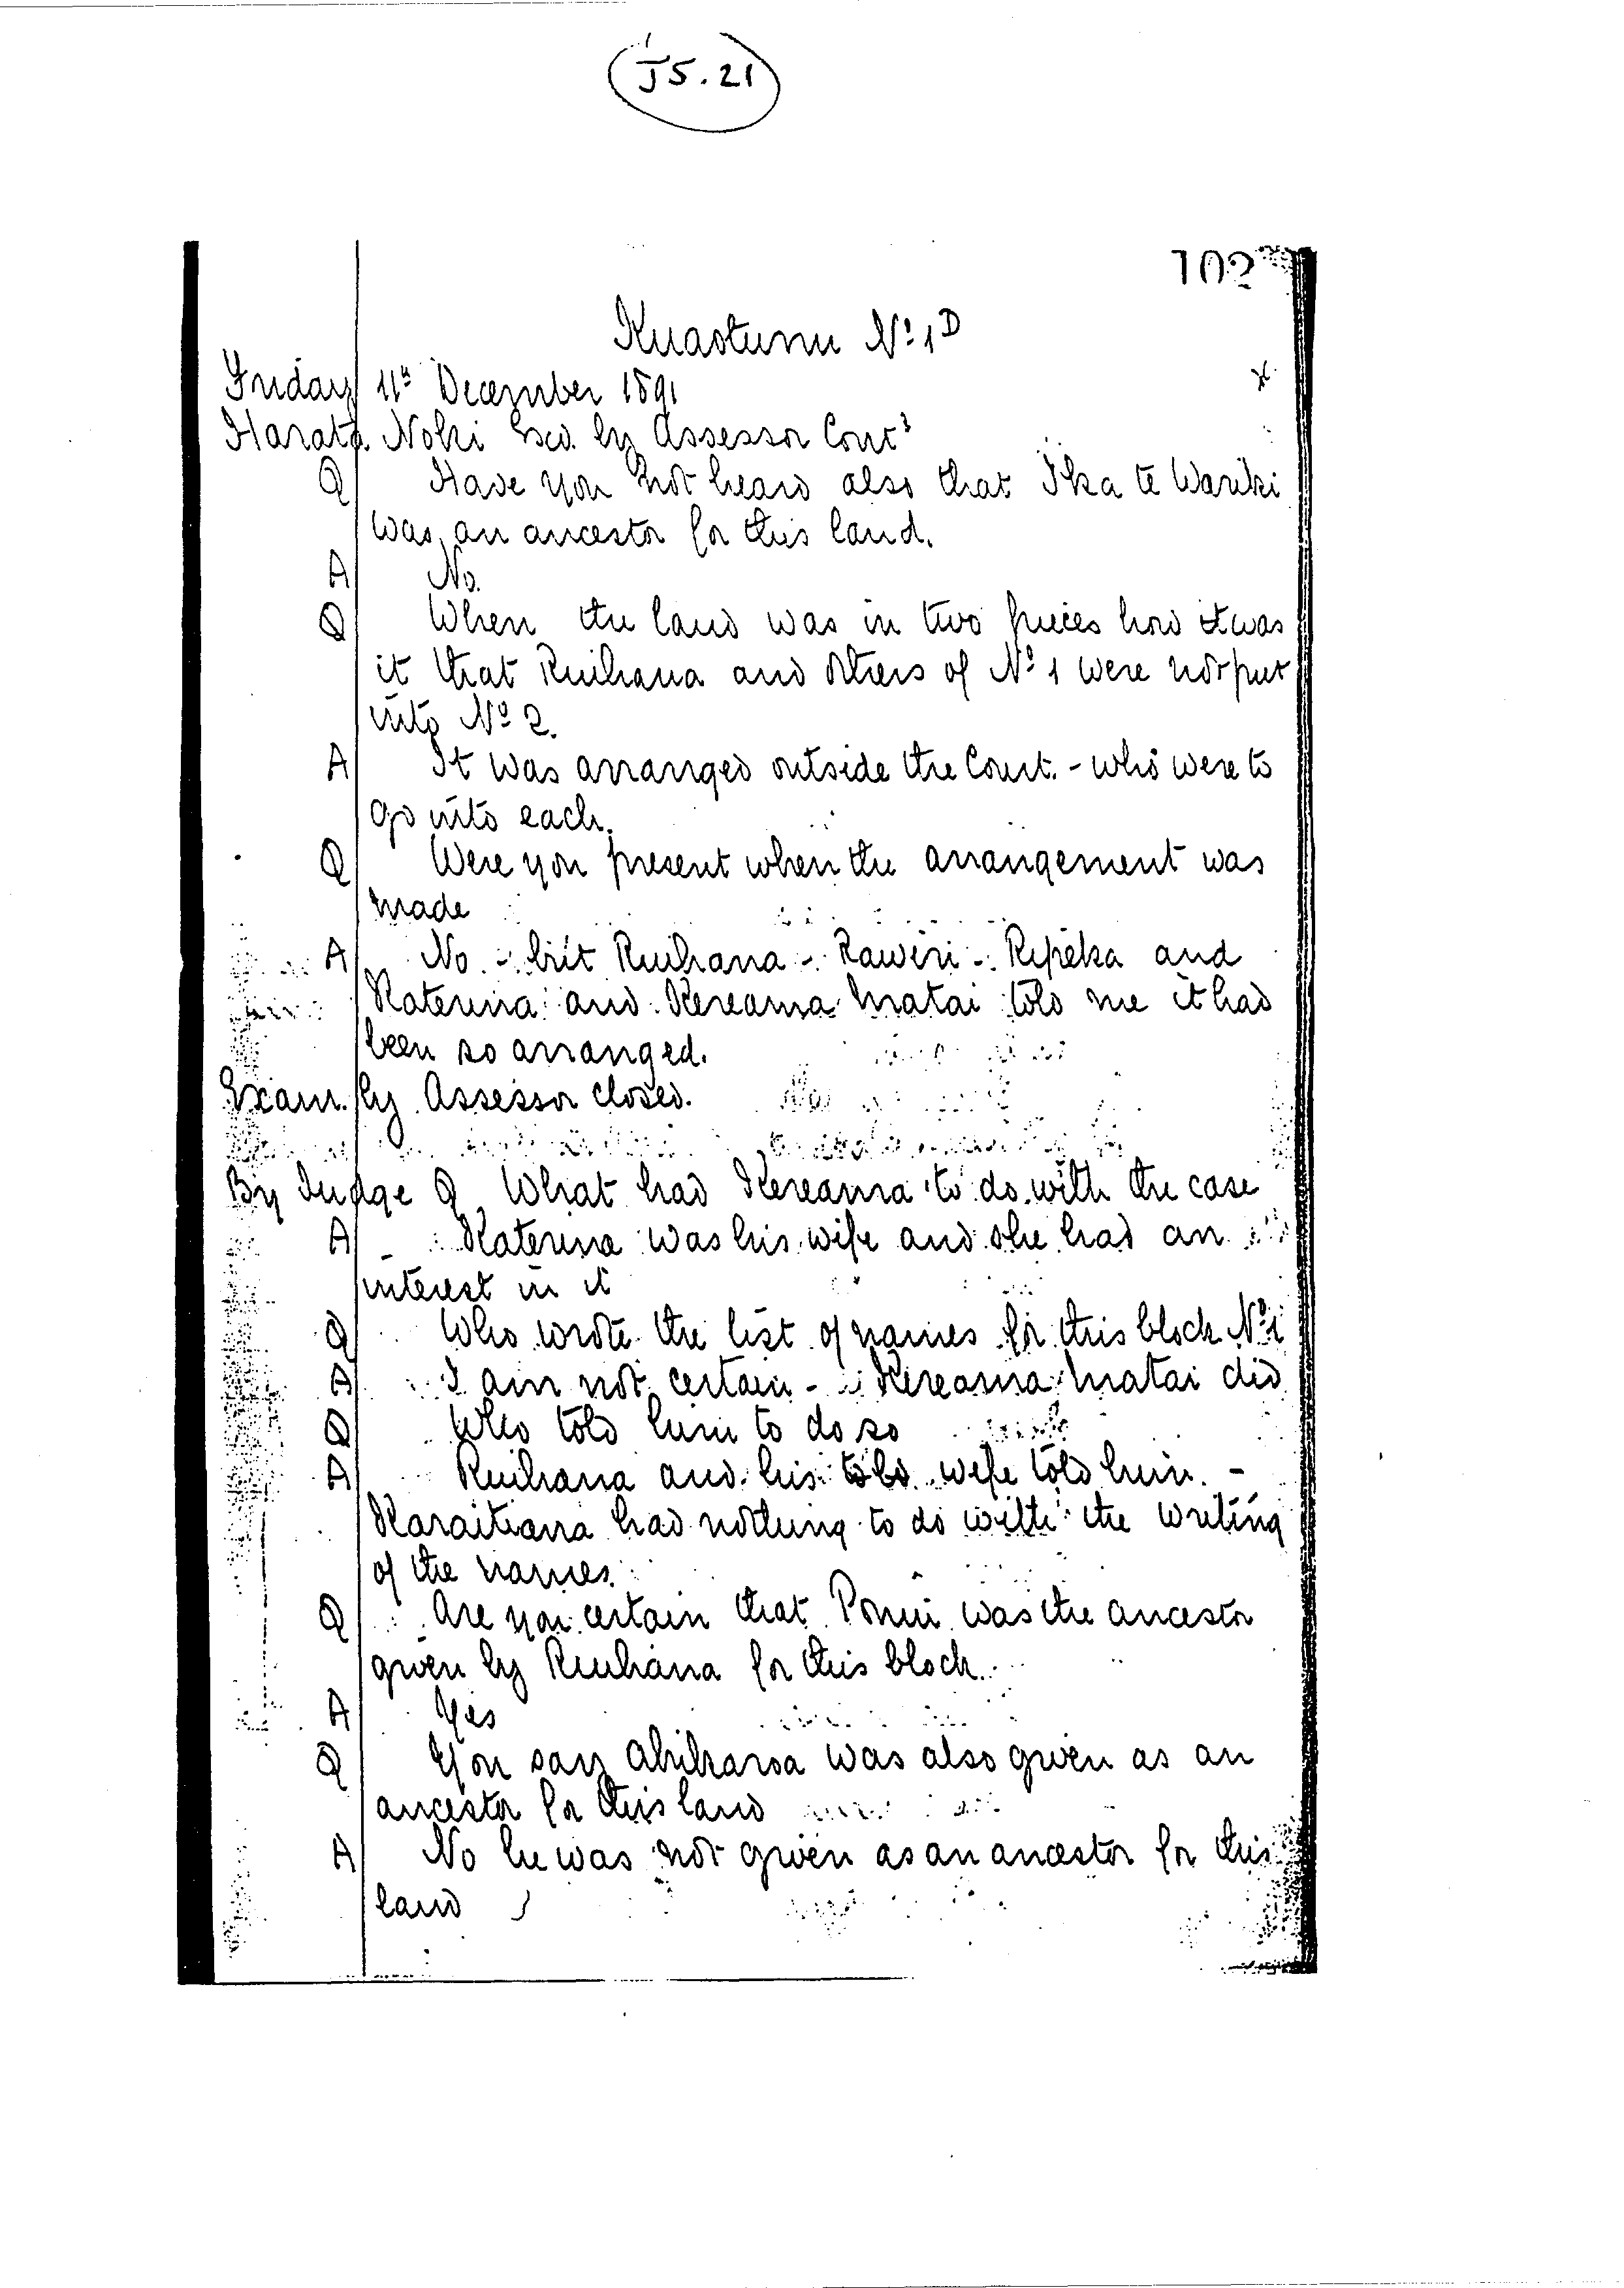 J5.21
102
Kuaotunu No. 1D
Friday 11th December 1891
Harata Noki Exd. by Assessor Contd
Q Have you not heard also that Ika te Wariki
was an ancestor for this land.
A No.
Q When the land was in two pieces how was
it that Ruihana and others of No. 1 were not put
into No. 2.
A It was arranged outside the Court. - who were to
go into each.
Q Were you present when the arrangement was
made
A No. - but Ruihana - Rawiri - Ripeka and
Katerina and Kereama Matai told me it had
been so arranged.
Exam. by Assessor closed.
By Judge Q What had Kereama to do with the case
A Katerina was his wife and she had an
interest in it
Q Who wrote the list of names for this block No. 1
A I am not certain - Kereama Matai did
Q Who told him to do so
A Ruihana and his told wife told him. -
Karaitiana had nothing to do with the writing
of the names.
Q Are you certain that was the ancestor
given by Ruihana for this block.
A Yes
Q You say Ahikaroa was also given as an
ancestor for this land
A No he was not given as an ancestor for this
land